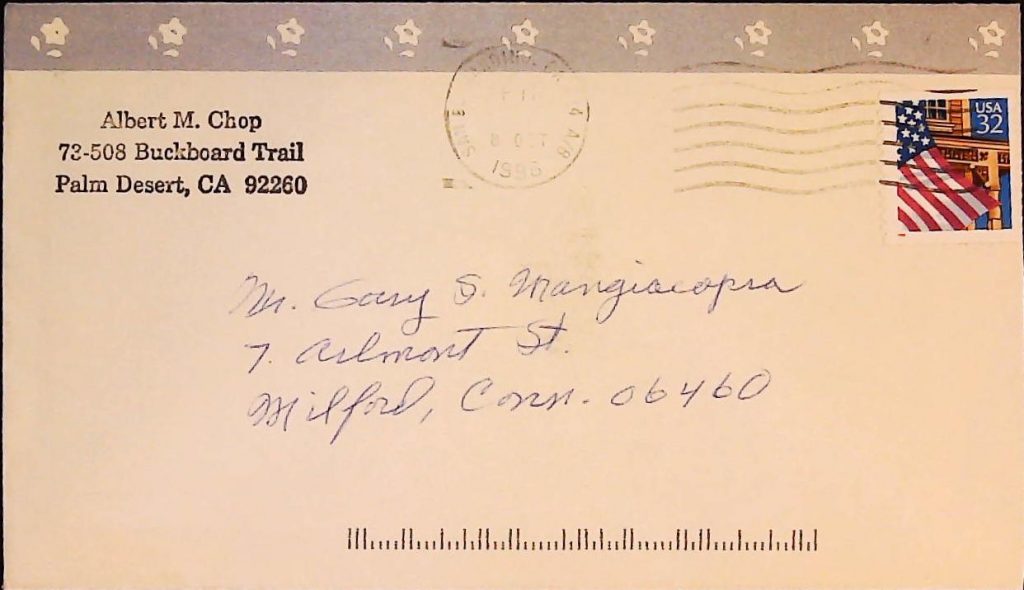 Albert M. Chop
73-508 Buckboard Trail
Palm Desert, CA 92260
SAN
PM
8 OCT
1996
USA
32
Mr. Gary S. Mangiacopra
7. Arlmont St.
Milford, Conn. 06460